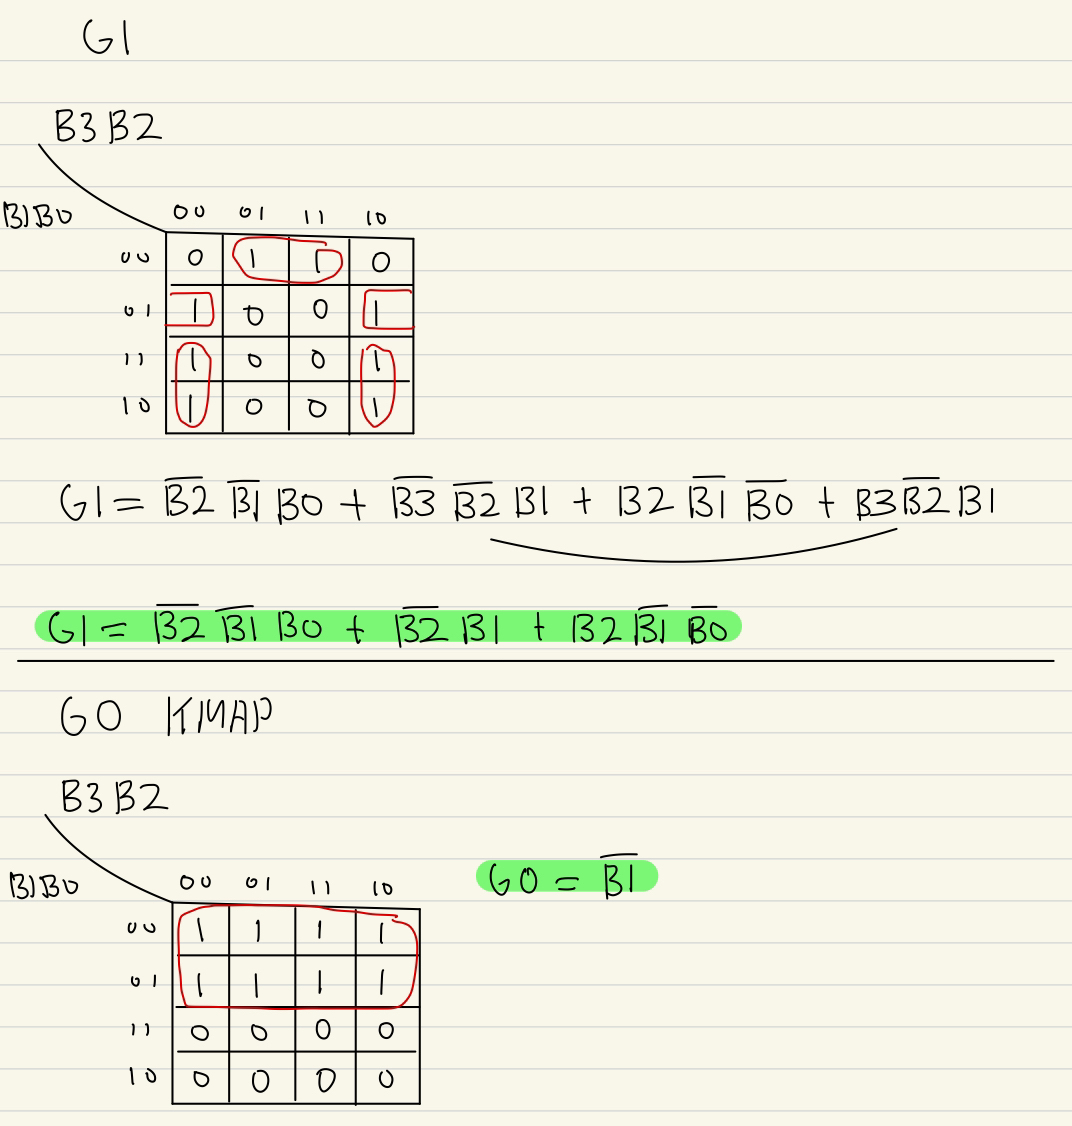 G1
B3 B2
B1B0 00 01 11 10
00 0 1 1 0
01 1 0 0 1
11 1 0 0 1
10 1 0 0 1
G1 = B̅2̅ B̅1̅ B0 + B̅3̅ B̅2̅ B1 + B2 B̅1̅ B̅0̅ + B3 B̅2̅ B1
G1 = B̅2̅ B̅1̅ B0 + B̅2̅ B1 + B2 B̅1̅ B̅0̅
G0 KMAP
B3 B2
B1B0 00 01 11 10
G0 = B̅1̅
00 1 1 1 1
01 1 1 1 1
11 0 0 0 0
10 0 0 0 0